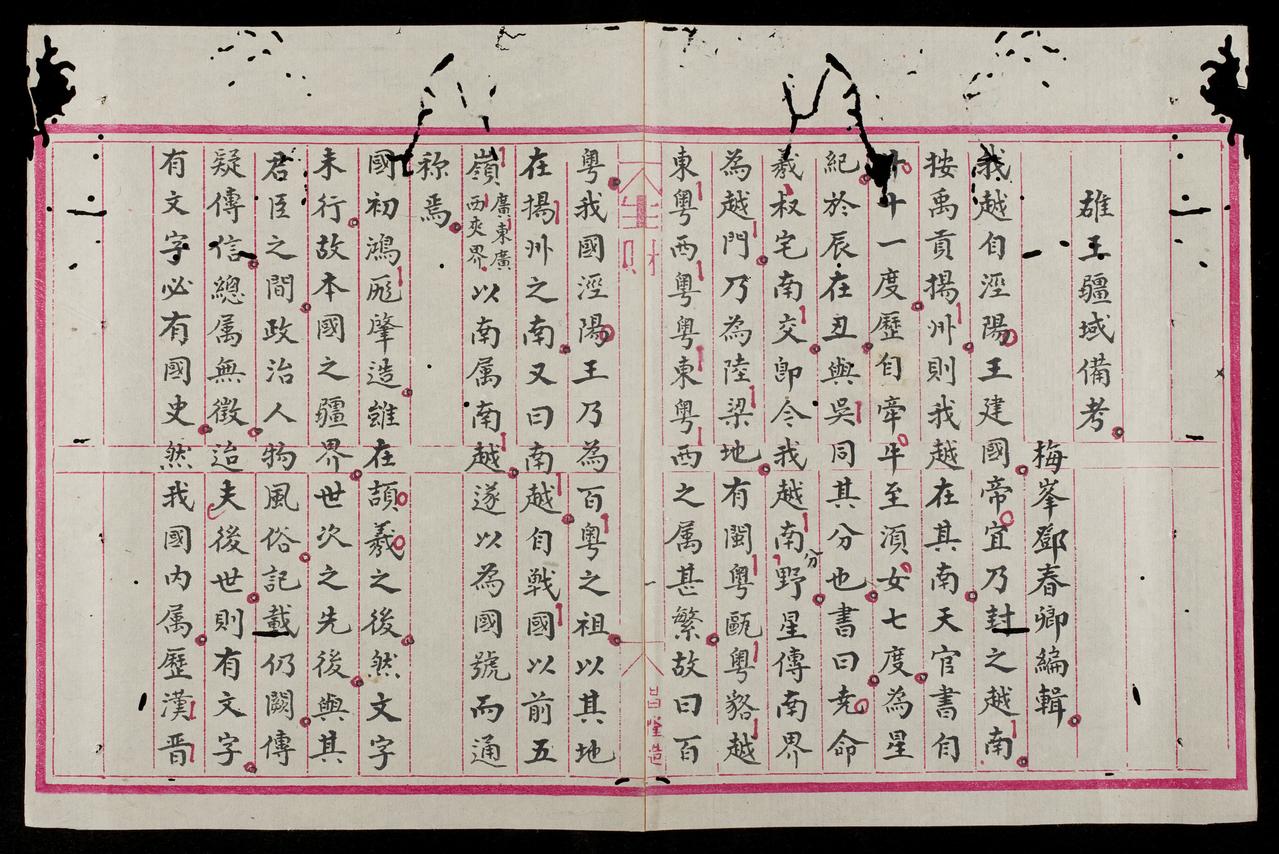 雄王疆域備考
梅峯鄧春卿編輯
我越自涇陽王建國帝宜乃封之越南
按禹貢揚州則我越在其南天官書自
十一度歷自牽牛至湏女七度為星
紀於辰在丑與吳同其分也書曰堯命
羲叔宅南交即今我越南分野星傳南界
為越門乃為陸梁地有閩粤甌粤貉越
東粤西粤粤東粤西之属甚繁故曰百
粤我國涇陽王乃為百粤之祖以其地
在揚州之南又曰南越自戰國以前五
嶺廣東廣西夾界以南属南越遂以為國號而通
称焉
國初鴻厖肇造雖在頡羲之後然文字
未行故本國之疆界世次之先後與其
君臣之間政治人物風俗記載仍闕傳
疑傳信總属無徵迨夫後世則有文字
有文字必有國史然我國内属歷漢晋
大生財
昌隆造